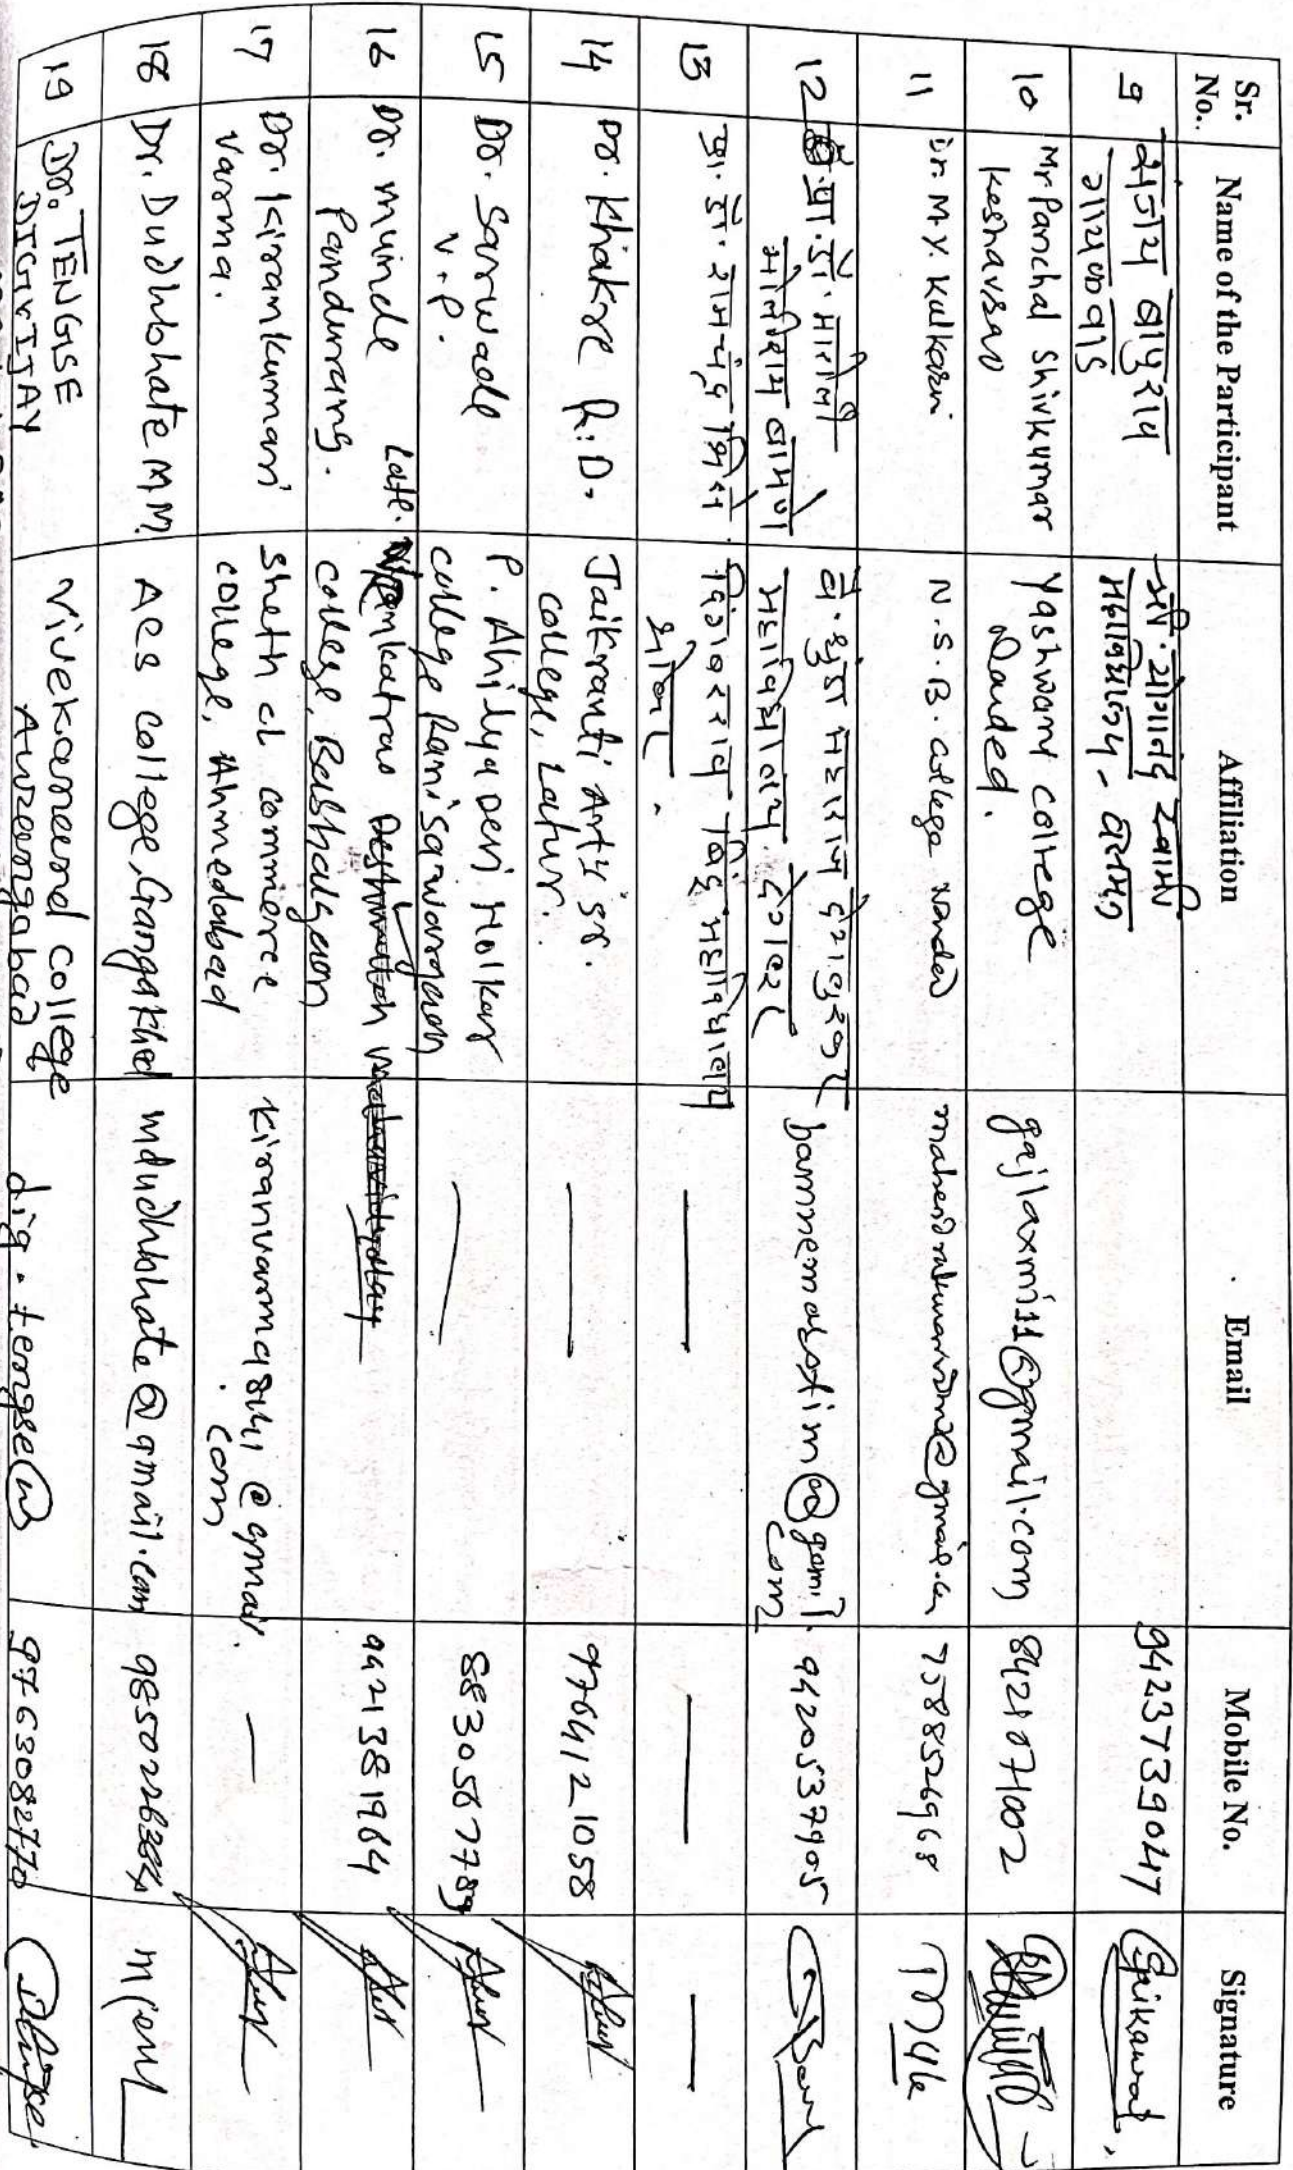 Sr. No. Name of the Participant Affiliation Email Mobile No. Signature
9 संजय बापुराव गायकवाड महाविद्यालय - वसमत 9423739047 Gaikawad
10 Mr Panchal Shivkumar Keshavrao Yashwant College Nanded. gajlaxmi11@gmail.com 8421071002
11 Dr. M.Y. Kulkarni N.S.B. College Nanded 7588526968
12 प्रा. डॉ. मारोती महाविद्यालय. देगलूर 9420537905
13 प्रा. डॉ. रामचंद्र भिसे. दिगंबरराव बिंदू महाविद्यालय भोकर. — — —
14 Dr. Khakre R.D. Jaikranti Arty sr. College, Latur. — 9764121058
15 Dr. Sarwade V.P. P. Ahilyadevi Holkar college Ranisawargaon — 8830587789
16 Dr. Munde Pandurang. Late. college, 9421381964
17 Dr. Kirankumari Varma. Sheth cl commerce college, Ahmedabad kiranvarma8141@gmail.com —
18 Dr. Dudhbhate M M ACS College, Gangakhed mdudhbhate@gmail.com
19 Dr. TENGSE DIGVIJAY Vivekanand College Aurangabad dig.tengse@ 9763082770